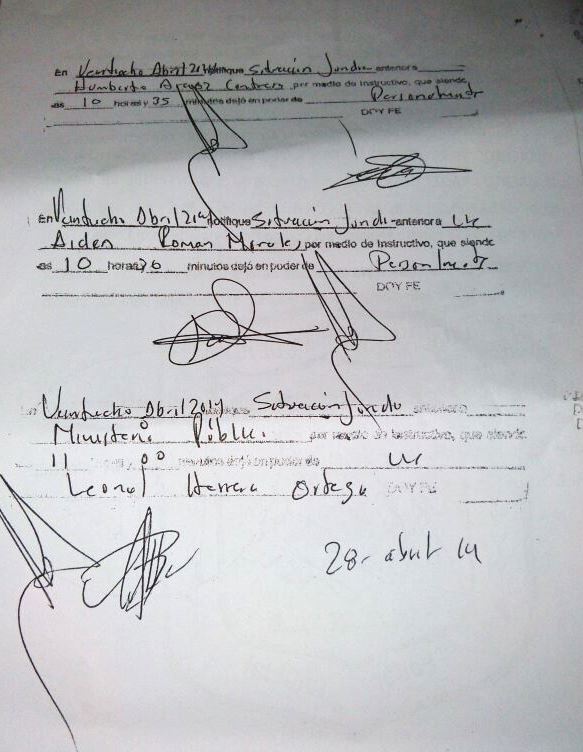 En Veintiocho Abril 2014 notifique Situación Jurídi anterior a
Humberto Contreras por medio de Instructivo, que siende
as 10 horas y 35 minutos dejó en poder de Personalment
DOY FE
En Veintiocho Abril 2014 notifique Situación Jurídi anterior a
Aiden Roman Morales, por medio de Instructivo, que siende
as 10 horas 36 minutos dejó en poder de Personalment
DOY FE
En Veintiocho Abril 2014 Situación Jurídi anterior a
Ministerio Públic. por medio de Instructivo, que siende
11 00 minutos dejó en poder de Lic
Leonel Herrera Ortega DOY FE
28 - abril 14